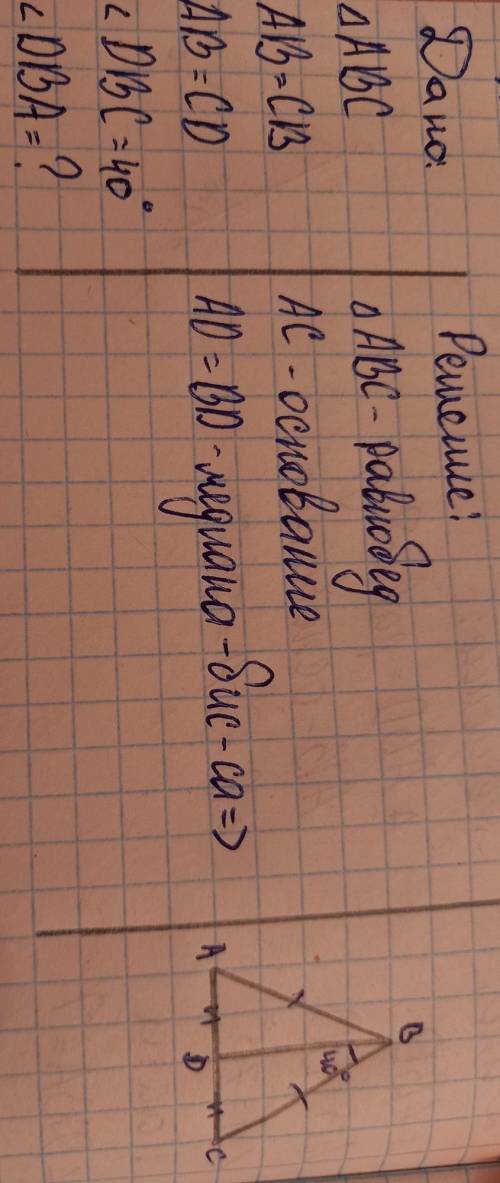 Дано:
∆ ABC
AB = CB
AB = CD
∠ DBC = 40°
∠ DBA = ?
Решение:
∆ ABC - равнобед
AC - основание
AD = BD - медиана - бис - са =>
B
40°
A
D
C